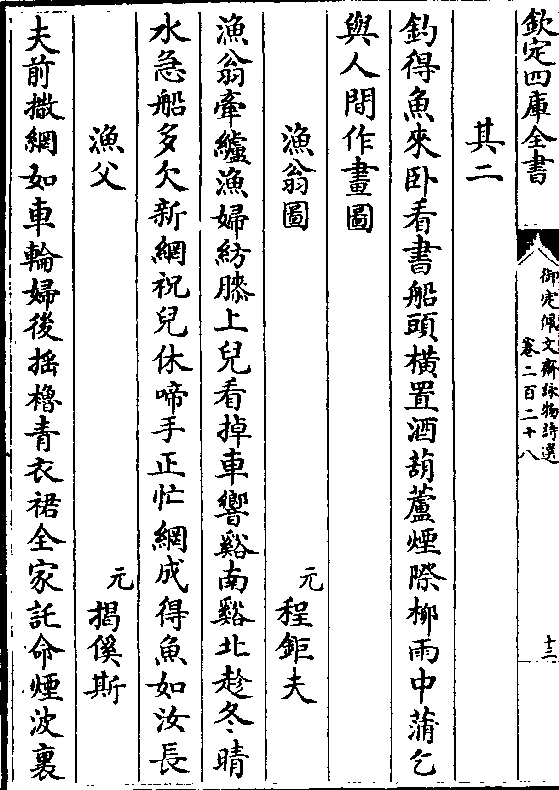 欽定四庫全書
御定佩文齋詠物詩選
卷二百二十八
十三
其二
釣得魚來卧看書船頭橫置酒葫蘆煙際柳雨中蒲乞
與人間作畫圖
漁翁圖
元
程鉅夫
漁翁牽纑漁婦紡膝上兒看掉車響谿南谿北趁冬晴
水急船多欠新網祝兒休啼手正忙網成得魚如汝長
漁父
元
揭傒斯
夫前撒網如車輪婦後摇櫓青衣裙全家託命煙波裏